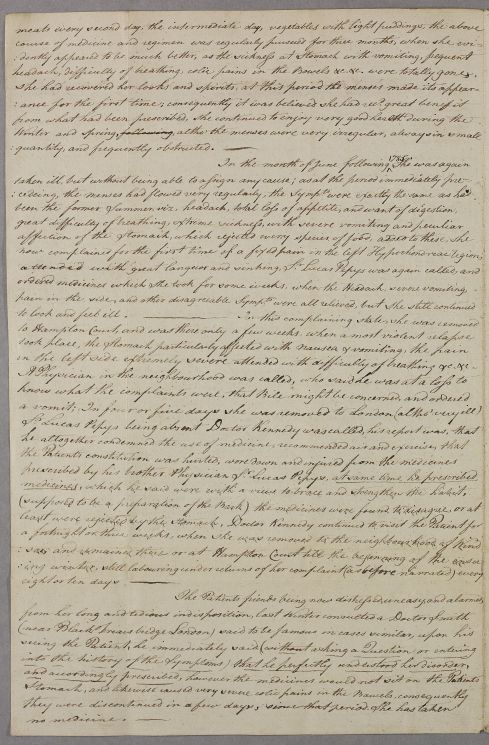 meats every second day, the intermediate day, vegetables with light puddings, the above
course of medicine and regimen was regularly pursued for three months, when she evi-
-dently appeared to be much better, as the sickness at Stomach with vomiting, frequent
headach, difficulty of breathing, colic pains in the Bowels &c &c. were totally gone,
She had recovered her looks and spirits, at this period the menses made its appear-
-ance for the first time; consequently it was believed She had recd. great benefit
from what had been prescribed, She continued to enjoy very good health during the
Winter and Spring, following, altho' the menses were very irregular, always in small
quantity, and frequently obstructed. —
In the month of June following, She was again
taken ill, but without being able to assign any cause; as at the period immediately pre-
-ceeding, the menses had flowed very regularly, the Sympts. were exactly the same as had
been the former Summer viz. headach, total loss of appetite, and want of digestion,
great difficulty of breathing, extreme sickness, with severe vomiting and peculiar
affection of the Stomach, which rejected every species of food, added to these, She
now complained for the first time of a fixed pain in the left Hypochondreac region,
attended with great languor and sinking, Sr. Lucas Pepys was again called, and
ordered medicines which She took for some weeks, when the Headach severe vomiting,
pain in the side, and other disagreeable Sympts. were all relieved, but She still continued
to look and feel ill. — In this complaining state, She was removed
to Hampton Court, and was there only a few weeks, when a most violent relapse
took place, the Stomach particularly affected with nausea & vomiting, the pain
in the left side extremely severe attended with difficulty of breathing &c. &c.
A Physician in the neighbourhood was called, who said he was at a loss to
know what the complaints were, that Bile might be concerned, and ordered
a vomit; In four or five days She was removed to London (altho' very ill)
Sr. Lucas Pepys being absent Doctor Kennedy was called, his report was, that
he altogether condemned the use of medicine, recommended air and exercise, that
the Patients constitution was hurried, wore down and injured from the medicines
prescribed by his brother Physician Sr. Lucas Pepys, at same time he prescribed
medicines, which he said were with a view to brace and strengthen the habit,
(supposed to be a preparation of the Bark) the medicines were found to disagree, or at
least were rejected by the Stomach, Doctor Kennedy continued to visit the Patient for
a fortnight or three weeks, when She was removed to the neighbourhood of Wind-
-sor and remained there or at Hampton Court till the beginning of the
-ing winter, still labouring under returns of her complaint (as before narrated) every
eight or ten days —
The Patients friends being now distressed, uneasy and alarmed
from her long and tedious indisposition, last Winter consulted a Doctor Smith
(near Black friars bridge London) said to be famous in cases similar, upon his
seeing the Patient, he immediately said (without asking a Question or entering
into the history of the Symptoms) that he perfectly understood her disorder,
and accordingly prescribed, however the medicines would not sit on the Patients
Stomach, and likewise caused very severe colic pains in the Bowels, consequently
they were discontinued in a few days, since that period She has taken
no medicine. —